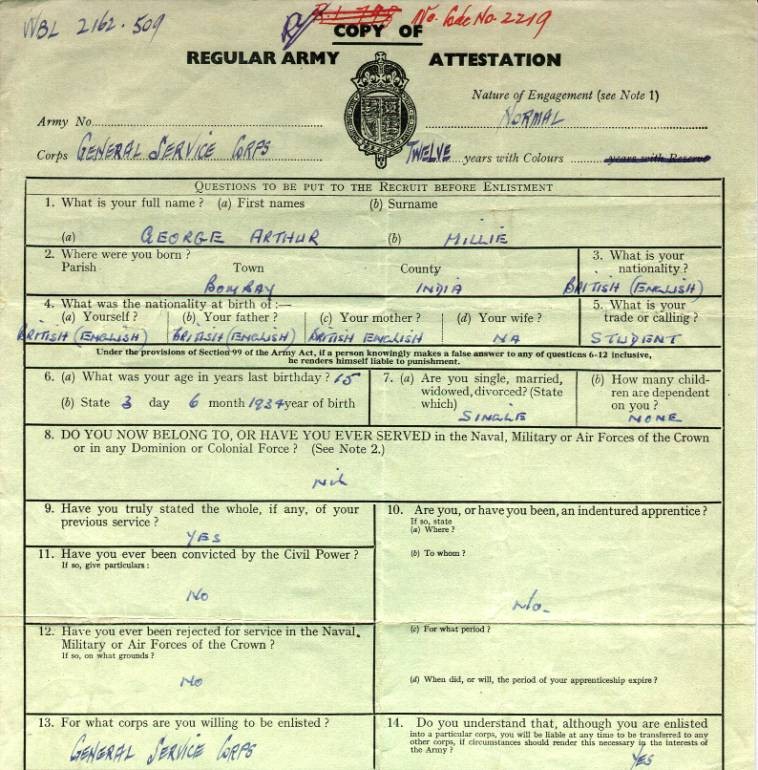 WBL 2162.509
No. Code No. 2219
COPY OF
REGULAR ARMY ATTESTATION
Nature of Engagement (see Note 1)
Army No. NORMAL
Corps GENERAL SERVICE CORPS TWELVE years with Colours years with Reserve
QUESTIONS TO BE PUT TO THE RECRUIT BEFORE ENLISTMENT
1. What is your full name? (a) First names (b) Surname
(a) GEORGE ARTHUR (b) MILLIE
2. Where were you born? 3. What is your
Parish Town County nationality?
BOMBAY INDIA BRITISH (ENGLISH)
4. What was the nationality at birth of:— 5. What is your
(a) Yourself? (b) Your father? (c) Your mother? (d) Your wife? trade or calling?
BRITISH (ENGLISH) BRITISH (ENGLISH) BRITISH ENGLISH NA STUDENT
Under the provisions of Section 99 of the Army Act, if a person knowingly makes a false answer to any of questions 6-12 inclusive,
he renders himself liable to punishment.
6. (a) What was your age in years last birthday? 15 7. (a) Are you single, married, (b) How many child-
widowed, divorced? (State ren are dependent
(b) State 3 day 6 month 1934 year of birth which) on you?
SINGLE NONE
8. DO YOU NOW BELONG TO, OR HAVE YOU EVER SERVED in the Naval, Military or Air Forces of the Crown
or in any Dominion or Colonial Force? (See Note 2.)
Nil
9. Have you truly stated the whole, if any, of your 10. Are you, or have you been, an indentured apprentice?
previous service? If so, state
(a) Where?
YES
11. Have you ever been convicted by the Civil Power? (b) To whom?
If so, give particulars:
No No.
12. Have you ever been rejected for service in the Naval, (c) For what period?
Military or Air Forces of the Crown?
If so, on what grounds?
No (d) When did, or will, the period of your apprenticeship expire?
13. For what corps are you willing to be enlisted? 14. Do you understand that, although you are enlisted
into a particular corps, you will be liable at any time to be transferred to any
GENERAL SERVICE CORPS other corps, if circumstances should render this necessary in the interests of
the Army? YES